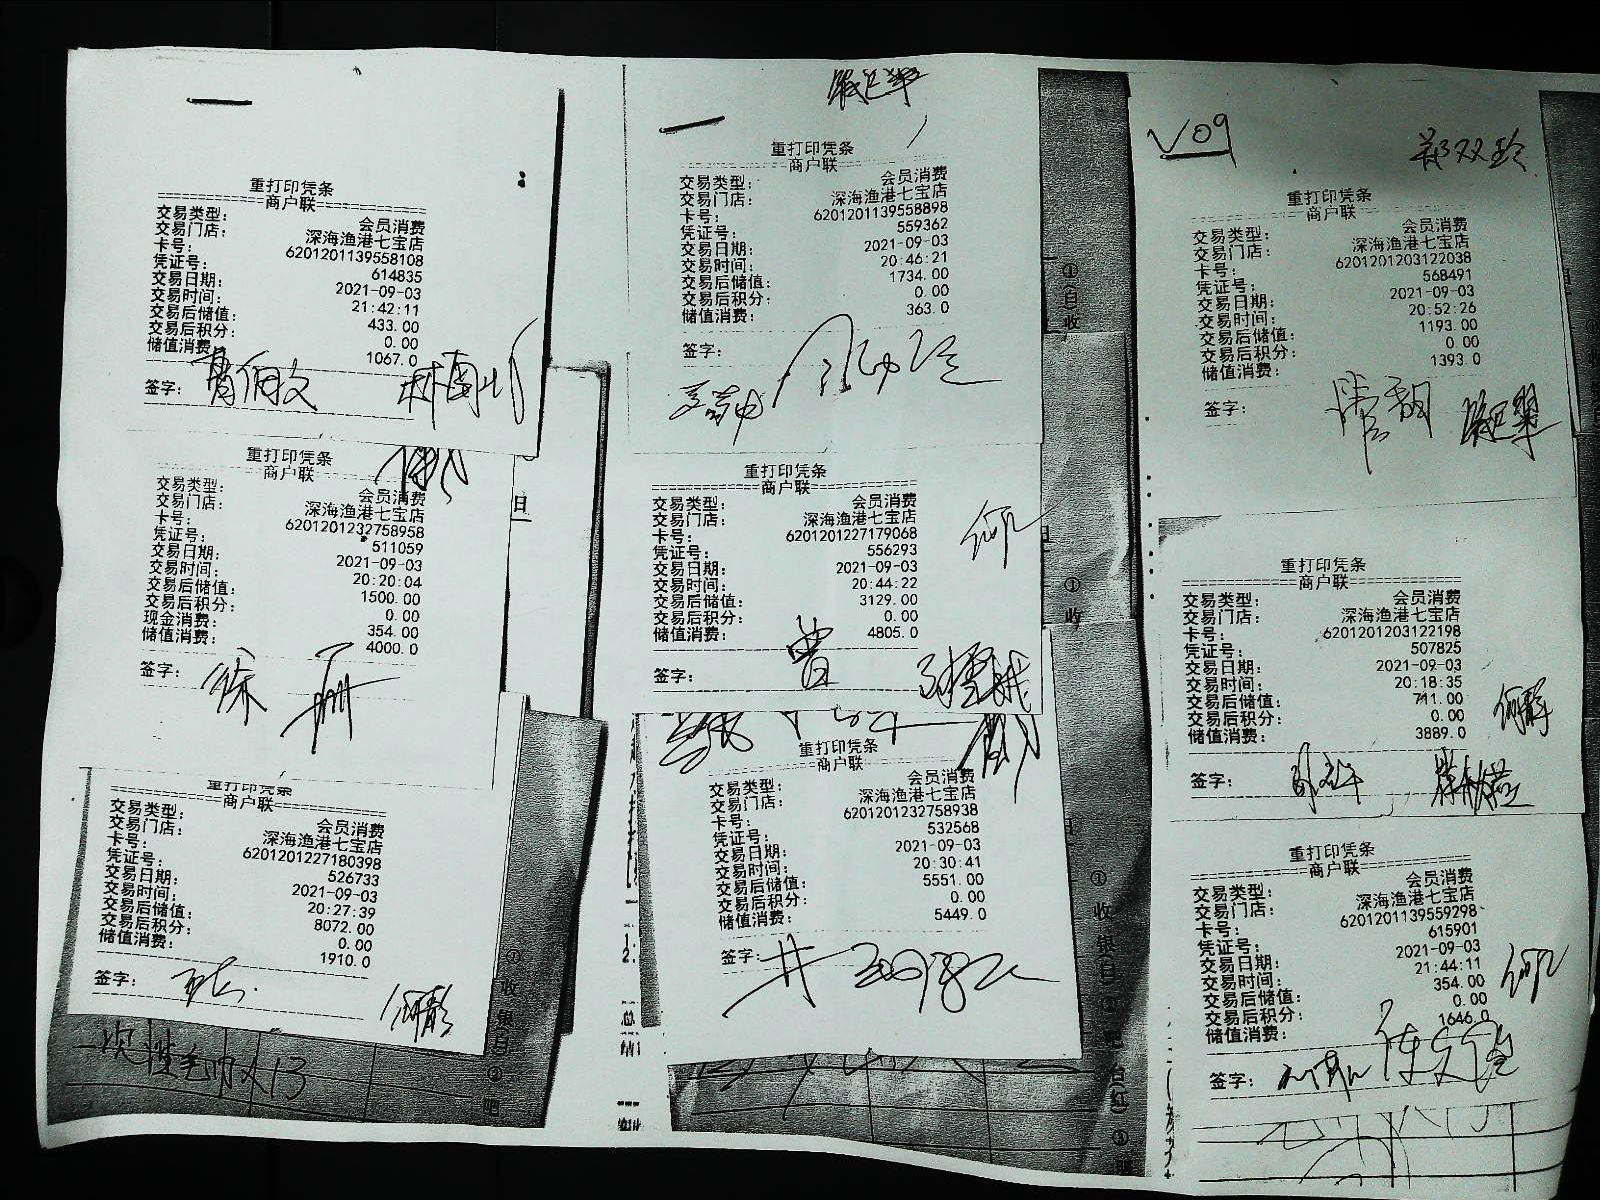 重打印凭条
商户联
交易类型： 会员消费
交易门店： 深海渔港七宝店
卡号： 6201201139558108
凭证号： 614835
交易日期： 2021-09-03
交易时间： 21:42:11
交易后储值： 433.00
交易后积分： 0.00
储值消费： 1067.0
签字：
重打印凭条
商户联
交易类型： 会员消费
交易门店： 深海渔港七宝店
卡号： 6201201232758958
凭证号： 511059
交易日期： 2021-09-03
交易时间： 20:20:04
交易后储值： 1500.00
交易后积分： 0.00
现金消费： 354.00
储值消费： 4000.0
签字： 徐册
重打印凭条
商户联
交易类型： 会员消费
交易门店： 深海渔港七宝店
卡号： 6201201227180398
凭证号： 526733
交易日期： 2021-09-03
交易时间： 20:27:39
交易后储值： 8072.00
交易后积分： 0.00
储值消费： 1910.0
签字：
一次性毛巾x13
重打印凭条
商户联
交易类型： 会员消费
交易门店： 深海渔港七宝店
卡号： 6201201139558898
凭证号： 559362
交易日期： 2021-09-03
交易时间： 20:46:21
交易后储值： 1734.00
交易后积分： 0.00
储值消费： 363.0
签字：
重打印凭条
商户联
交易类型： 会员消费
交易门店： 深海渔港七宝店
卡号： 6201201227179068
凭证号： 556293
交易日期： 2021-09-03
交易时间： 20:44:22
交易后储值： 3129.00
交易后积分： 0.00
储值消费： 4805.0
签字： 曾
重打印凭条
商户联
交易类型： 会员消费
交易门店： 深海渔港七宝店
卡号： 6201201232758938
凭证号： 532568
交易日期： 2021-09-03
交易时间： 20:30:41
交易后储值： 5551.00
交易后积分： 0.00
储值消费： 5449.0
签字：
V09 郑双玲
重打印凭条
商户联
交易类型： 会员消费
交易门店： 深海渔港七宝店
卡号： 6201201203122038
凭证号： 568491
交易日期： 2021-09-03
交易时间： 20:52:26
交易后储值： 1193.00
交易后积分： 0.00
储值消费： 1393.0
签字：
重打印凭条
商户联
交易类型： 会员消费
交易门店： 深海渔港七宝店
卡号： 6201201203122198
凭证号： 507825
交易日期： 2021-09-03
交易时间： 20:18:35
交易后储值： 711.00
交易后积分： 0.00
储值消费： 3889.0
签字：
重打印凭条
商户联
交易类型： 会员消费
交易门店： 深海渔港七宝店
卡号： 6201201139559298
凭证号： 615901
交易日期： 2021-09-03
交易时间： 21:44:11
交易后储值： 354.00
交易后积分： 0.00
储值消费： 1646.0
签字：